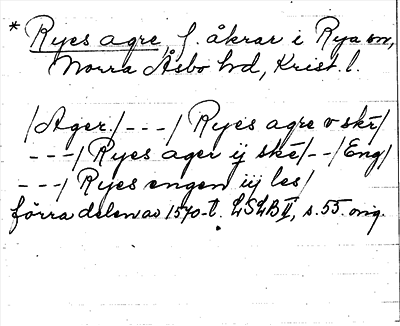 * Ryes agre, f. åkrar i Rya sn,
Norra Åsbo hd, Krist. l.
/Ager./---/ Ryes agre v skr̄/
---/ Ryes ager ij skē/--/Eng/
---/ Ryes engen iij les/
förra delen av 1570-t. LSLB II, s. 55. orig.